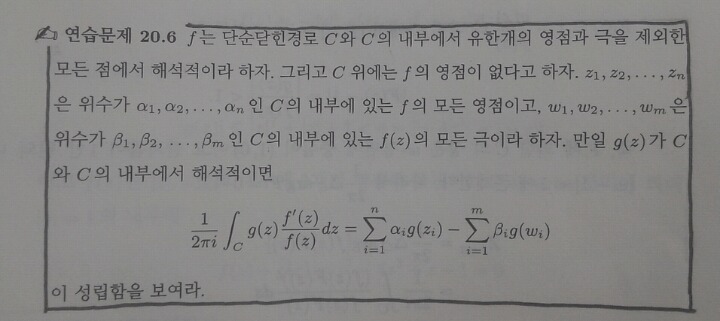 연습문제 20.6 f는 단순닫힌경로 C와 C의 내부에서 유한개의 영점과 극을 제외한
모든 점에서 해석적이라 하자. 그리고 C 위에는 f의 영점이 없다고 하자. z₁, z₂, ..., zₙ
은 위수가 α₁, α₂, ..., αₙ인 C의 내부에 있는 f의 모든 영점이고, w₁, w₂, ..., wₘ은
위수가 β₁, β₂, ..., βₘ인 C의 내부에 있는 f(z)의 모든 극이라 하자. 만일 g(z)가 C
와 C의 내부에서 해석적이면
\frac{1}{2\pi i} \int_C g(z) \frac{f'(z)}{f(z)} dz = \sum_{i=1}^{n} \alpha_i g(z_i) - \sum_{i=1}^{m} \beta_i g(w_i)
이 성립함을 보여라.